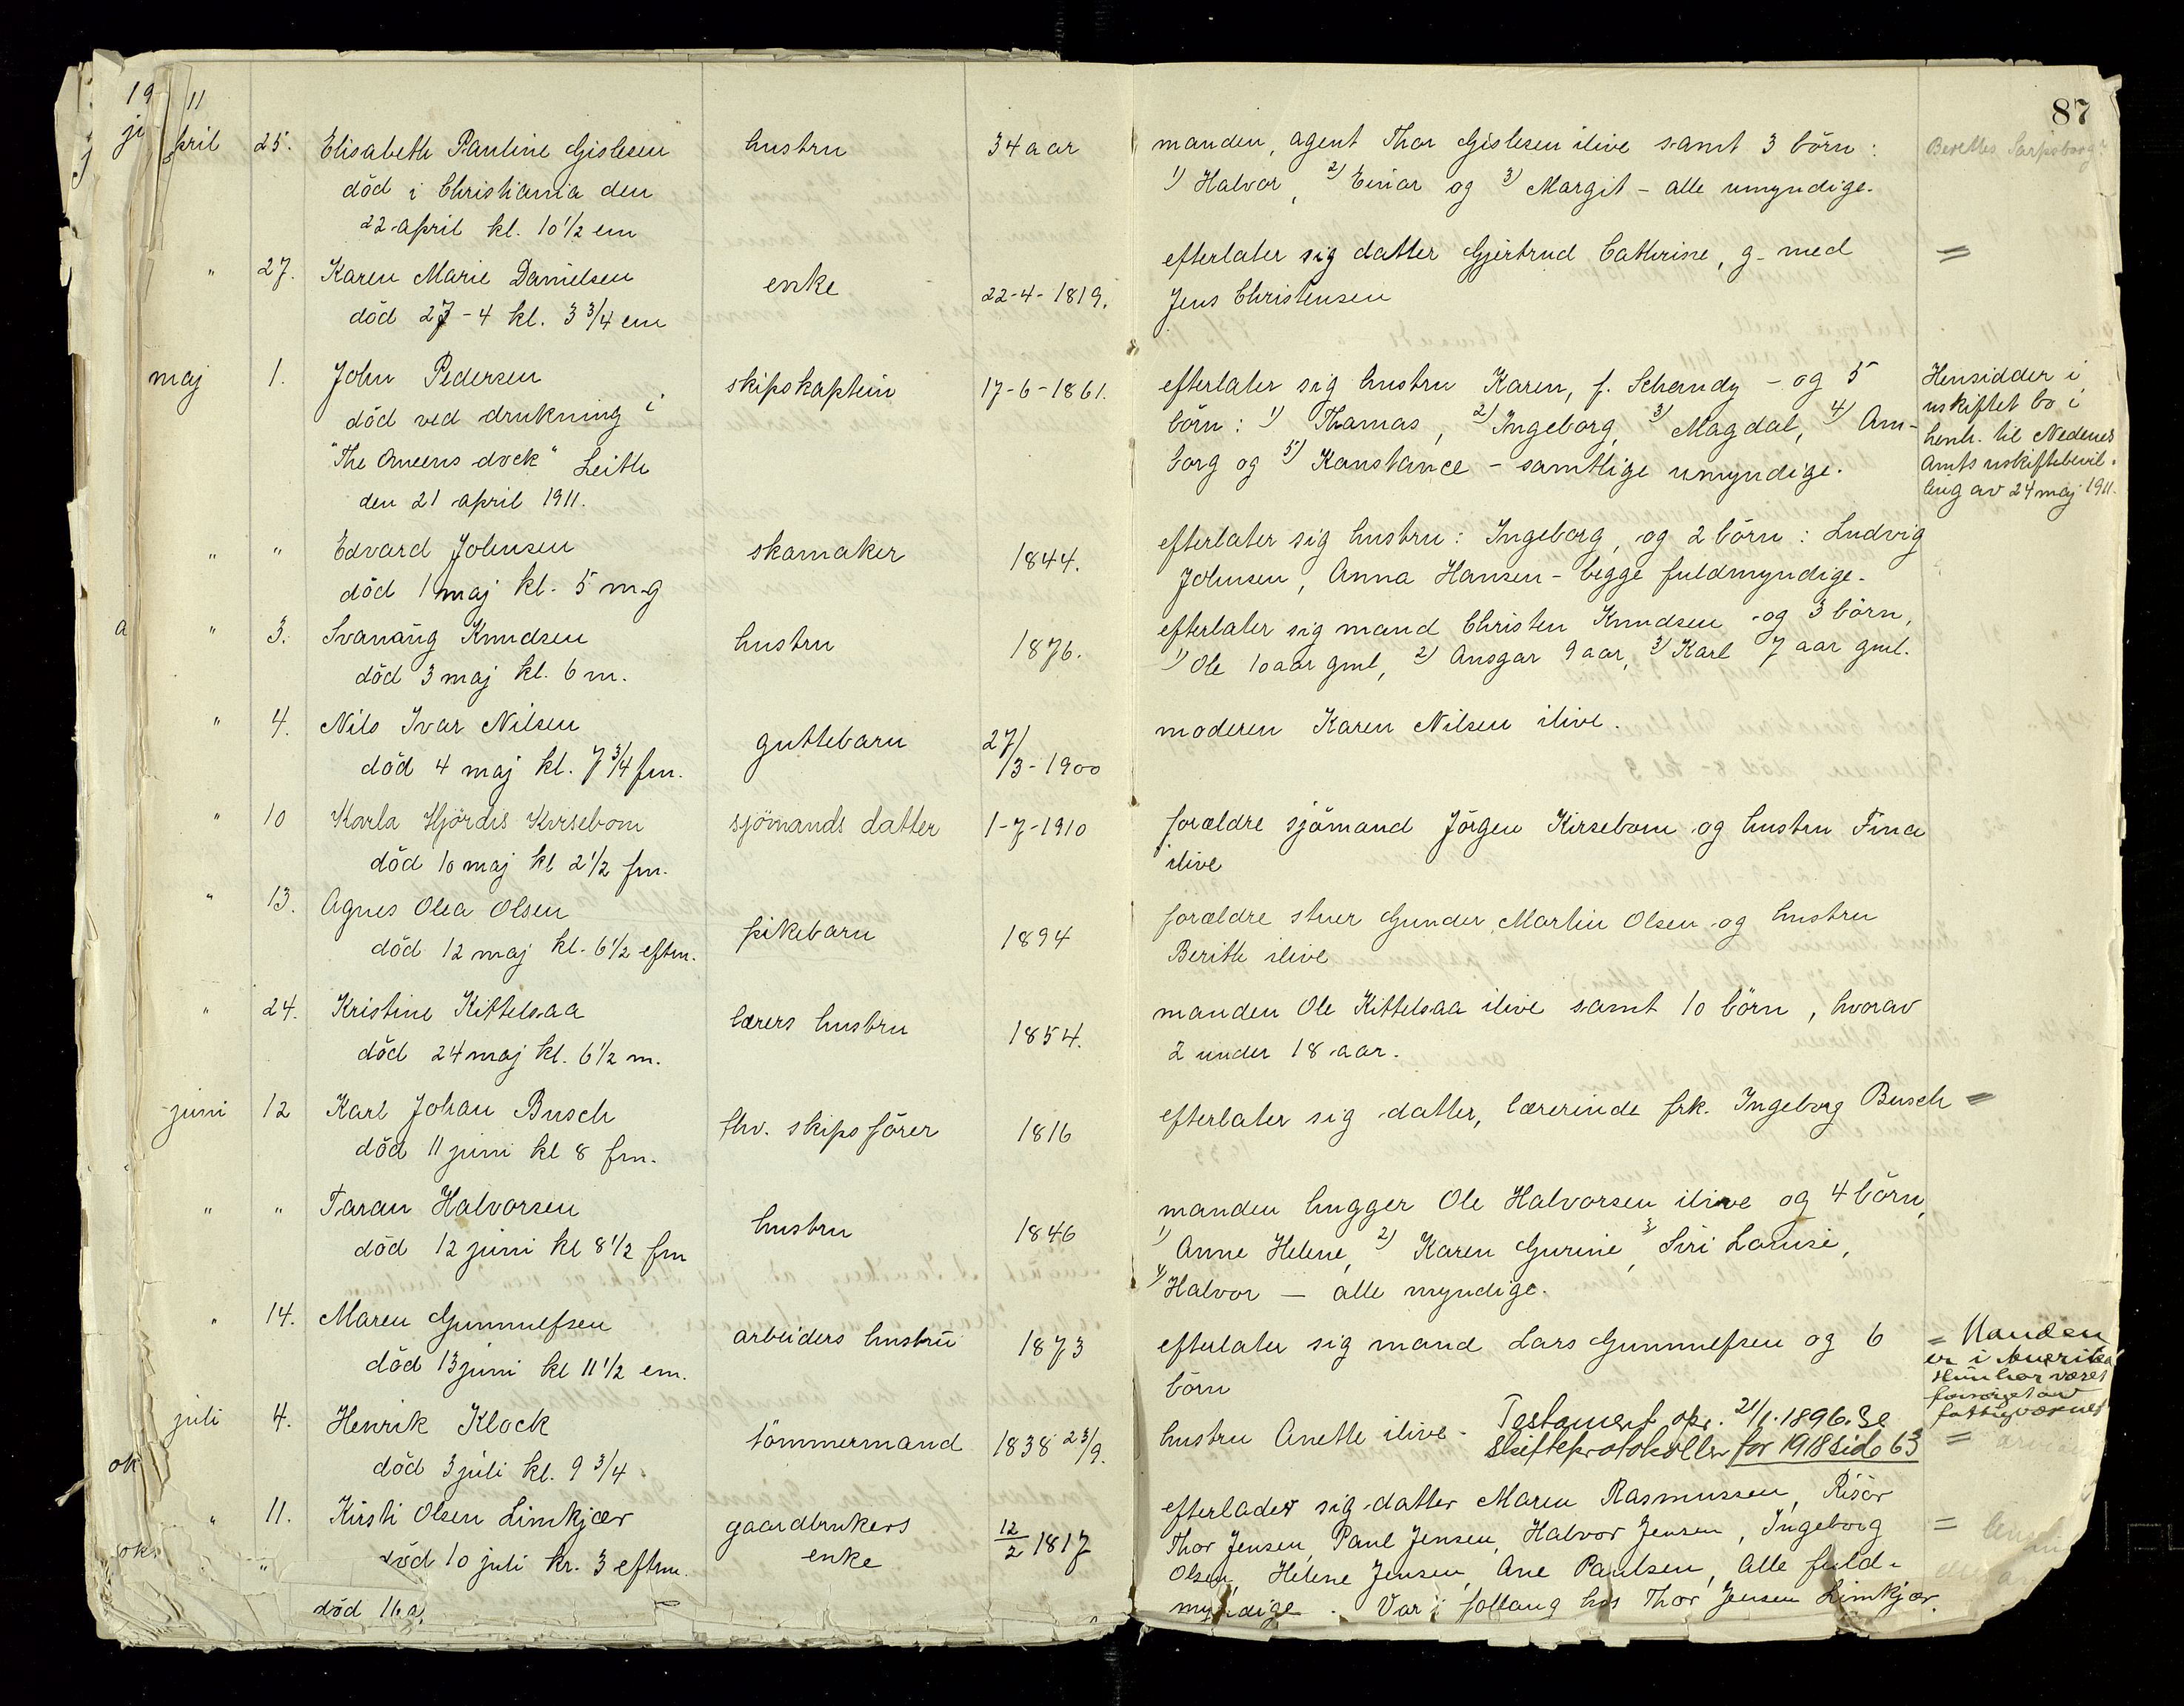 1911
87
april 25. Elisabeth Pauline Gislesen hustru 34 aar manden, agent Thor Gislesen ilive samt 3 börn: Berettes Sarpsborg?
död i Christiania den 1) Halvor, 2) Einar og 3) Margit - alle umyndige.
22 april kl. 10 1/2 em
" 27. Karen Marie Danielsen enke 22-4-1819. efterlater sig datter Gjertrud Cathrine, g. med =
död 27-4 kl. 3 3/4 em Jens Christensen
maj 1. John Pedersen skipskaptein 17-6-1861. efterlater sig hustru Karen, f. Schandy - og 5 Hensidder i
död ved drukning i börn: 1) Thomas, 2) Ingeborg, 3) Magdal, 4) Am- uskiftet bo i
"The Queens dock" Leith borg og 5) Konstance - samtlige umyndige. henh. til Nedenes
den 21 april 1911. Amts uskiftebevil-
ling av 24 maj 1911.
" " Edvard Johnsen skomaker 1844. efterlater sig hustru: Ingeborg, og 2 börn: Ludvig
död 1 maj kl. 5 mg Johnsen, Anna Hansen - begge fuldmyndige.
" 3. Svanaug Knudsen hustru 1876. efterlater sig mand Christen Knudsen og 3 börn,
död 3 maj kl. 6 m. 1) Ole 10 aar gml, 2) Ansgar 9 aar, 3) Karl 7 aar gml.
" 4. Nils Ivar Nilsen guttebarn 27/3-1900 moderen Karen Nilsen ilive.
död 4 maj kl. 7 3/4 fm.
" 10 Karla Hjördis Kirsebom sjömands datter 1-7-1910 forældre sjömand Jörgen Kirsebom og hustru Fina
död 10 maj kl 2 1/2 fm. ilive
" 13. Agnes Olea Olsen pikebarn 1894 forældre stuer Gunder Martin Olsen og hustru
död 12 maj kl. 6 1/2 eftm. Berithe ilive
" 24. Kristine Kittelsaa lærers hustru 1854. manden Ole Kittelsaa ilive samt 10 börn, hvorav
död 24 maj kl. 6 1/2 m. 2 under 18 aar.
juni 12 Karl Johan Busch fhv. skipsförer 1816 efterlater sig datter, lærerinde frk. Ingeborg Busch =
död 11 juni kl 8 fm.
" " Taran Halvorsen hustru 1846 manden hugger Ole Halvorsen ilive og 4 börn,
död 12 juni kl 8 1/2 fm 1) Anne Helene, 2) Karen Gurine, 3) Siri Lovise,
4) Halvor - alle myndige.
" 14. Maren Gunnulfsen arbeiders hustru 1873 efterlater sig mand Lars Gunnulfsen og 6 = Manden
död 13 juni kl 11 1/2 em. börn er i Amerika
Hun har været
forsörget av
fattigvæsnet
juli 4. Henrik Klock tömmermand 1838 23/9. hustru Anette ilive. Testament opr. 21/1.1896. Se
ok död 3 juli kl. 9 3/4 skifteprotokollen for 1918 side 63 =
" 11. Kirsti Olsen Limkjær gaardbrukers 12/2 1817 efterlader sig datter Maren Rasmussen, Risör
ok. död 10 juli kr. 3 eftm. enke Thor Jensen, Paul Jensen, Halvor Jensen, Ingeborg =
" Olsen, Helene Jensen, Ane Paulsen, Alle fuld-
död 16 a. myndige. Var i foltaug hos Thor Jensen Limkjær.